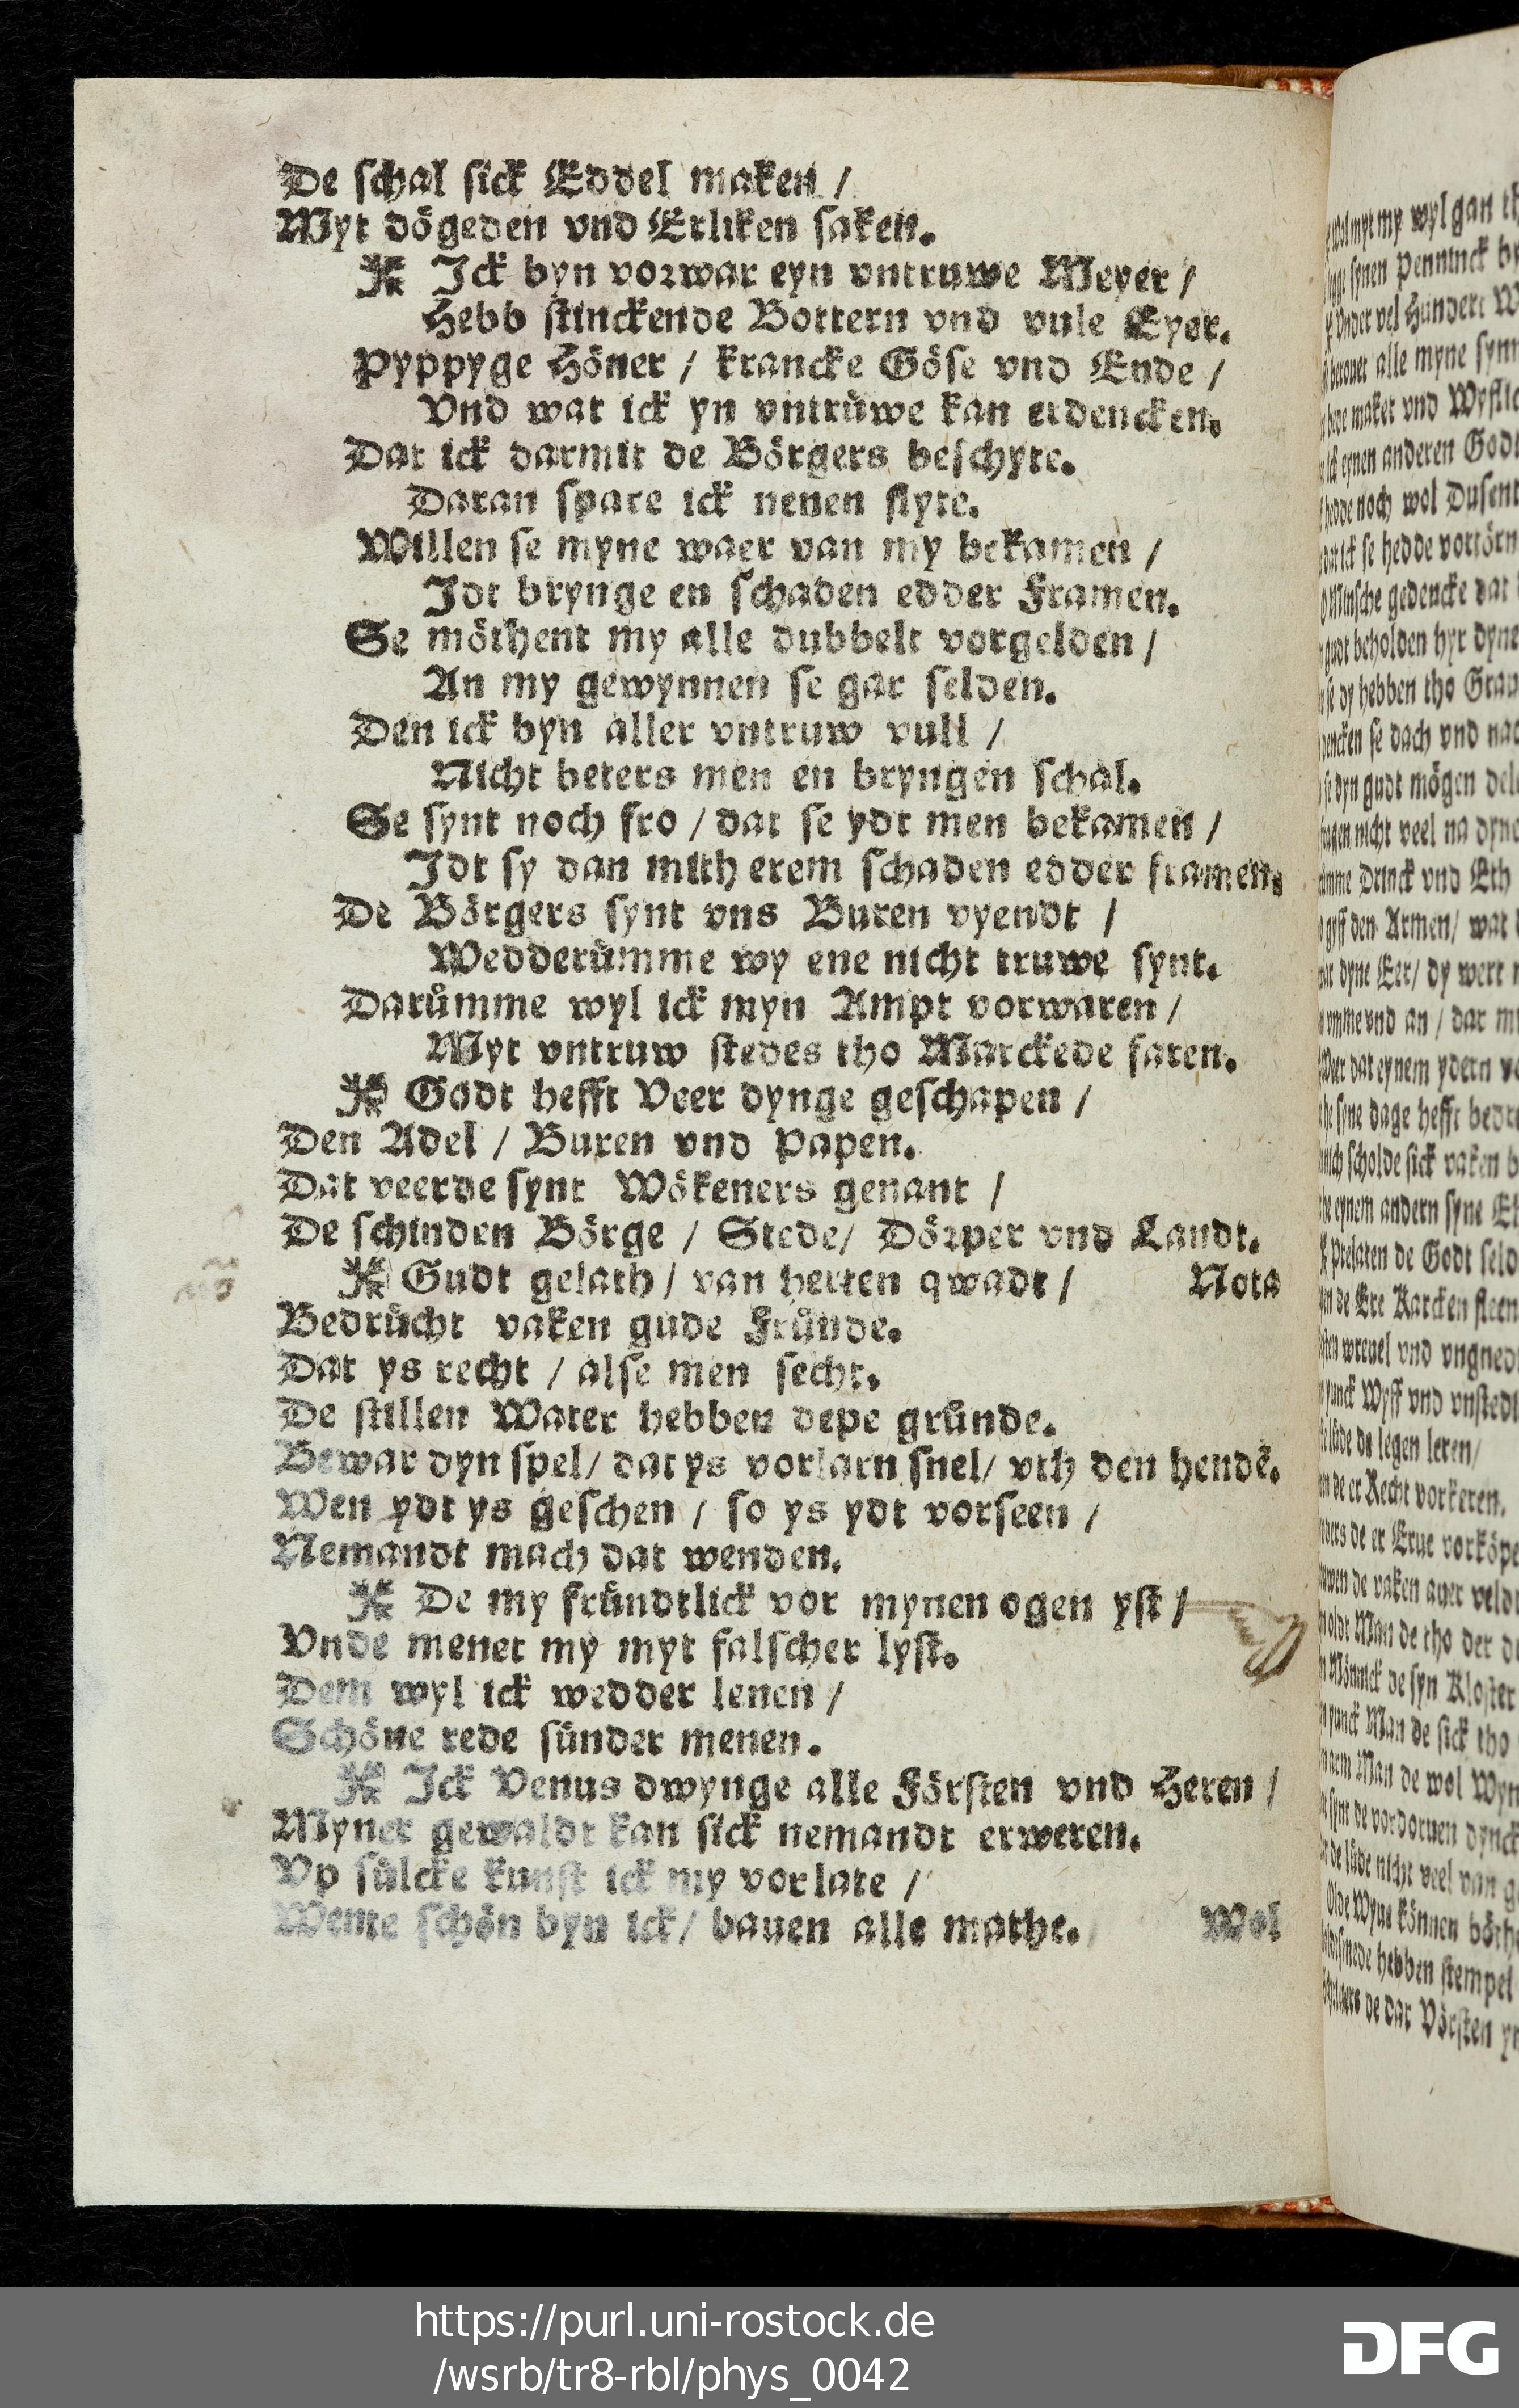 De schal sick Eddel maken /
Myt dögeden vnd Erliken saken.
Ick byn vorwar eyn vntruwe Meyer /
Hebb stinckende Bottern vnd vule Eyer.
Pyppyge Höner / krancke Göse vnd Ende /
Vnd wat ick yn vntrůwe kan erdencken.
Dat ick darmit de Börgers beschyte.
Daran spare ick nenen flyte.
Willen se myne waer van my bekamen /
Idt brynge en schaden edder Framen.
Se möthent my alle dubbelt vorgelden /
An my gewynnen se gar selden.
Den ick byn aller vntruw vull /
Nicht beters men en bryngen schal.
Se synt noch fro / dat se ydt men bekamen /
Idt sy dan mith erem schaden edder framen.
De Börgers synt vns Buren vyendt /
Wedderůmme wy ene nicht truwe synt.
Darůmme wyl ick myn Ampt vorwaren /
Myt vntruw stedes tho Marckede faren.
Godt hefft Veer dynge geschapen /
Den Adel / Buren vnd Papen.
Dat veerde synt Wökeners genant /
De schinden Börge / Stede/ Dörper vnd Landt.
Gudt gelath / van herten qwadt / Nota
Bedrůcht vaken gude Frůnde.
Dat ys recht / alse men secht.
De stillen Water hebben depe grůnde.
Bewar dyn spel/ dat ys vorlarn snel/ vth den hendē.
Wen ydt ys geschen / so ys ydt vorseen /
Nemandt mach dat wenden.
De my frůndtlick vor mynen ogen yst /
Vnde menet my myt falscher lyst.
Dem wyl ick wedder lenen /
Schöne rede sůnder menen.
Ick Venus dwynge alle Försten vnd Heren /
Myner gewaldt kan sick nemandt erweren.
Vp sůlcke kunst ick my vorlate /
Wente schön byn ick/ bauen alle mathe. Wol
https://purl.uni-rostock.de
/wsrb/tr8-rbl/phys_0042
DFG